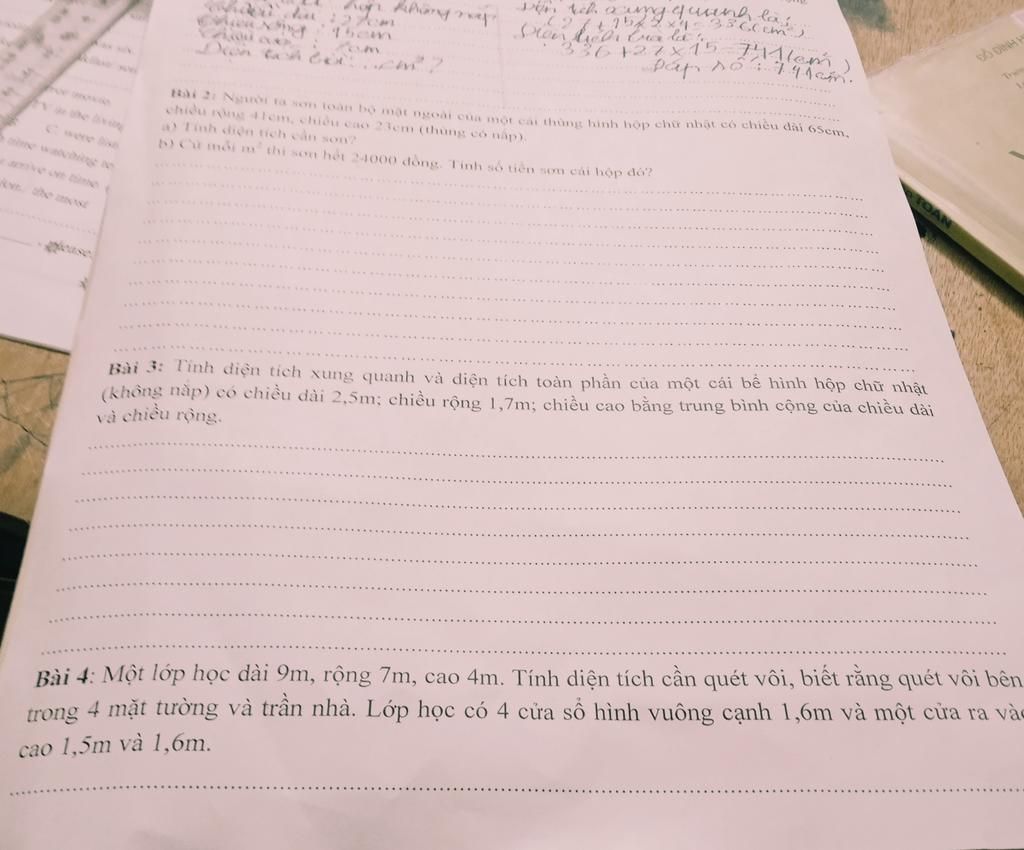 hộp không nắp
: 27cm
: 15cm
cm
cm² ?
Diện tích xung quanh là:
336(cm²)
336 + 27 x 15 = 741(cm²)
Đáp số : 741cm.
Bài 2: Người ta sơn toàn bộ mặt ngoài của một cái thùng hình hộp chữ nhật có chiều dài 65cm,
chiều rộng 41cm, chiều cao 23cm (thùng có nắp).
a) Tính diện tích cần sơn?
b) Cứ mỗi m² thì sơn hết 24000 đồng. Tính số tiền sơn cái hộp đó?
Bài 3: Tính diện tích xung quanh và diện tích toàn phần của một cái bể hình hộp chữ nhật
(không nắp) có chiều dài 2,5m; chiều rộng 1,7m; chiều cao bằng trung bình cộng của chiều dài
và chiều rộng.
Bài 4: Một lớp học dài 9m, rộng 7m, cao 4m. Tính diện tích cần quét vôi, biết rằng quét vôi bên
trong 4 mặt tường và trần nhà. Lớp học có 4 cửa sổ hình vuông cạnh 1,6m và một cửa ra vào
cao 1,5m và 1,6m.
in the living
C. were
time watching
arrive on time
the most
please
TOÁN